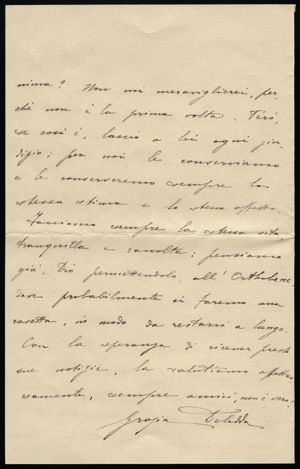 nima? Non mi meraviglierei, per-
chè non è la prima volta. Però,
se così è, lascio a lei ogni giu-
dizio; per noi le conserviamo
e le conserveremo sempre la
stessa stima e lo stesso affetto.
Facciamo sempre la stessa vita
tranquilla e raccolta: pensiamo
già, Dio permettendolo, all'Ortobene
dove probabilmente ci faremo una
casetta, in modo da restarvi a lungo.
Con la speranza di ricever presto
sue notizie, la salutiamo affettuo-
samente, sempre amici, non è vero?
Grazia Deledda